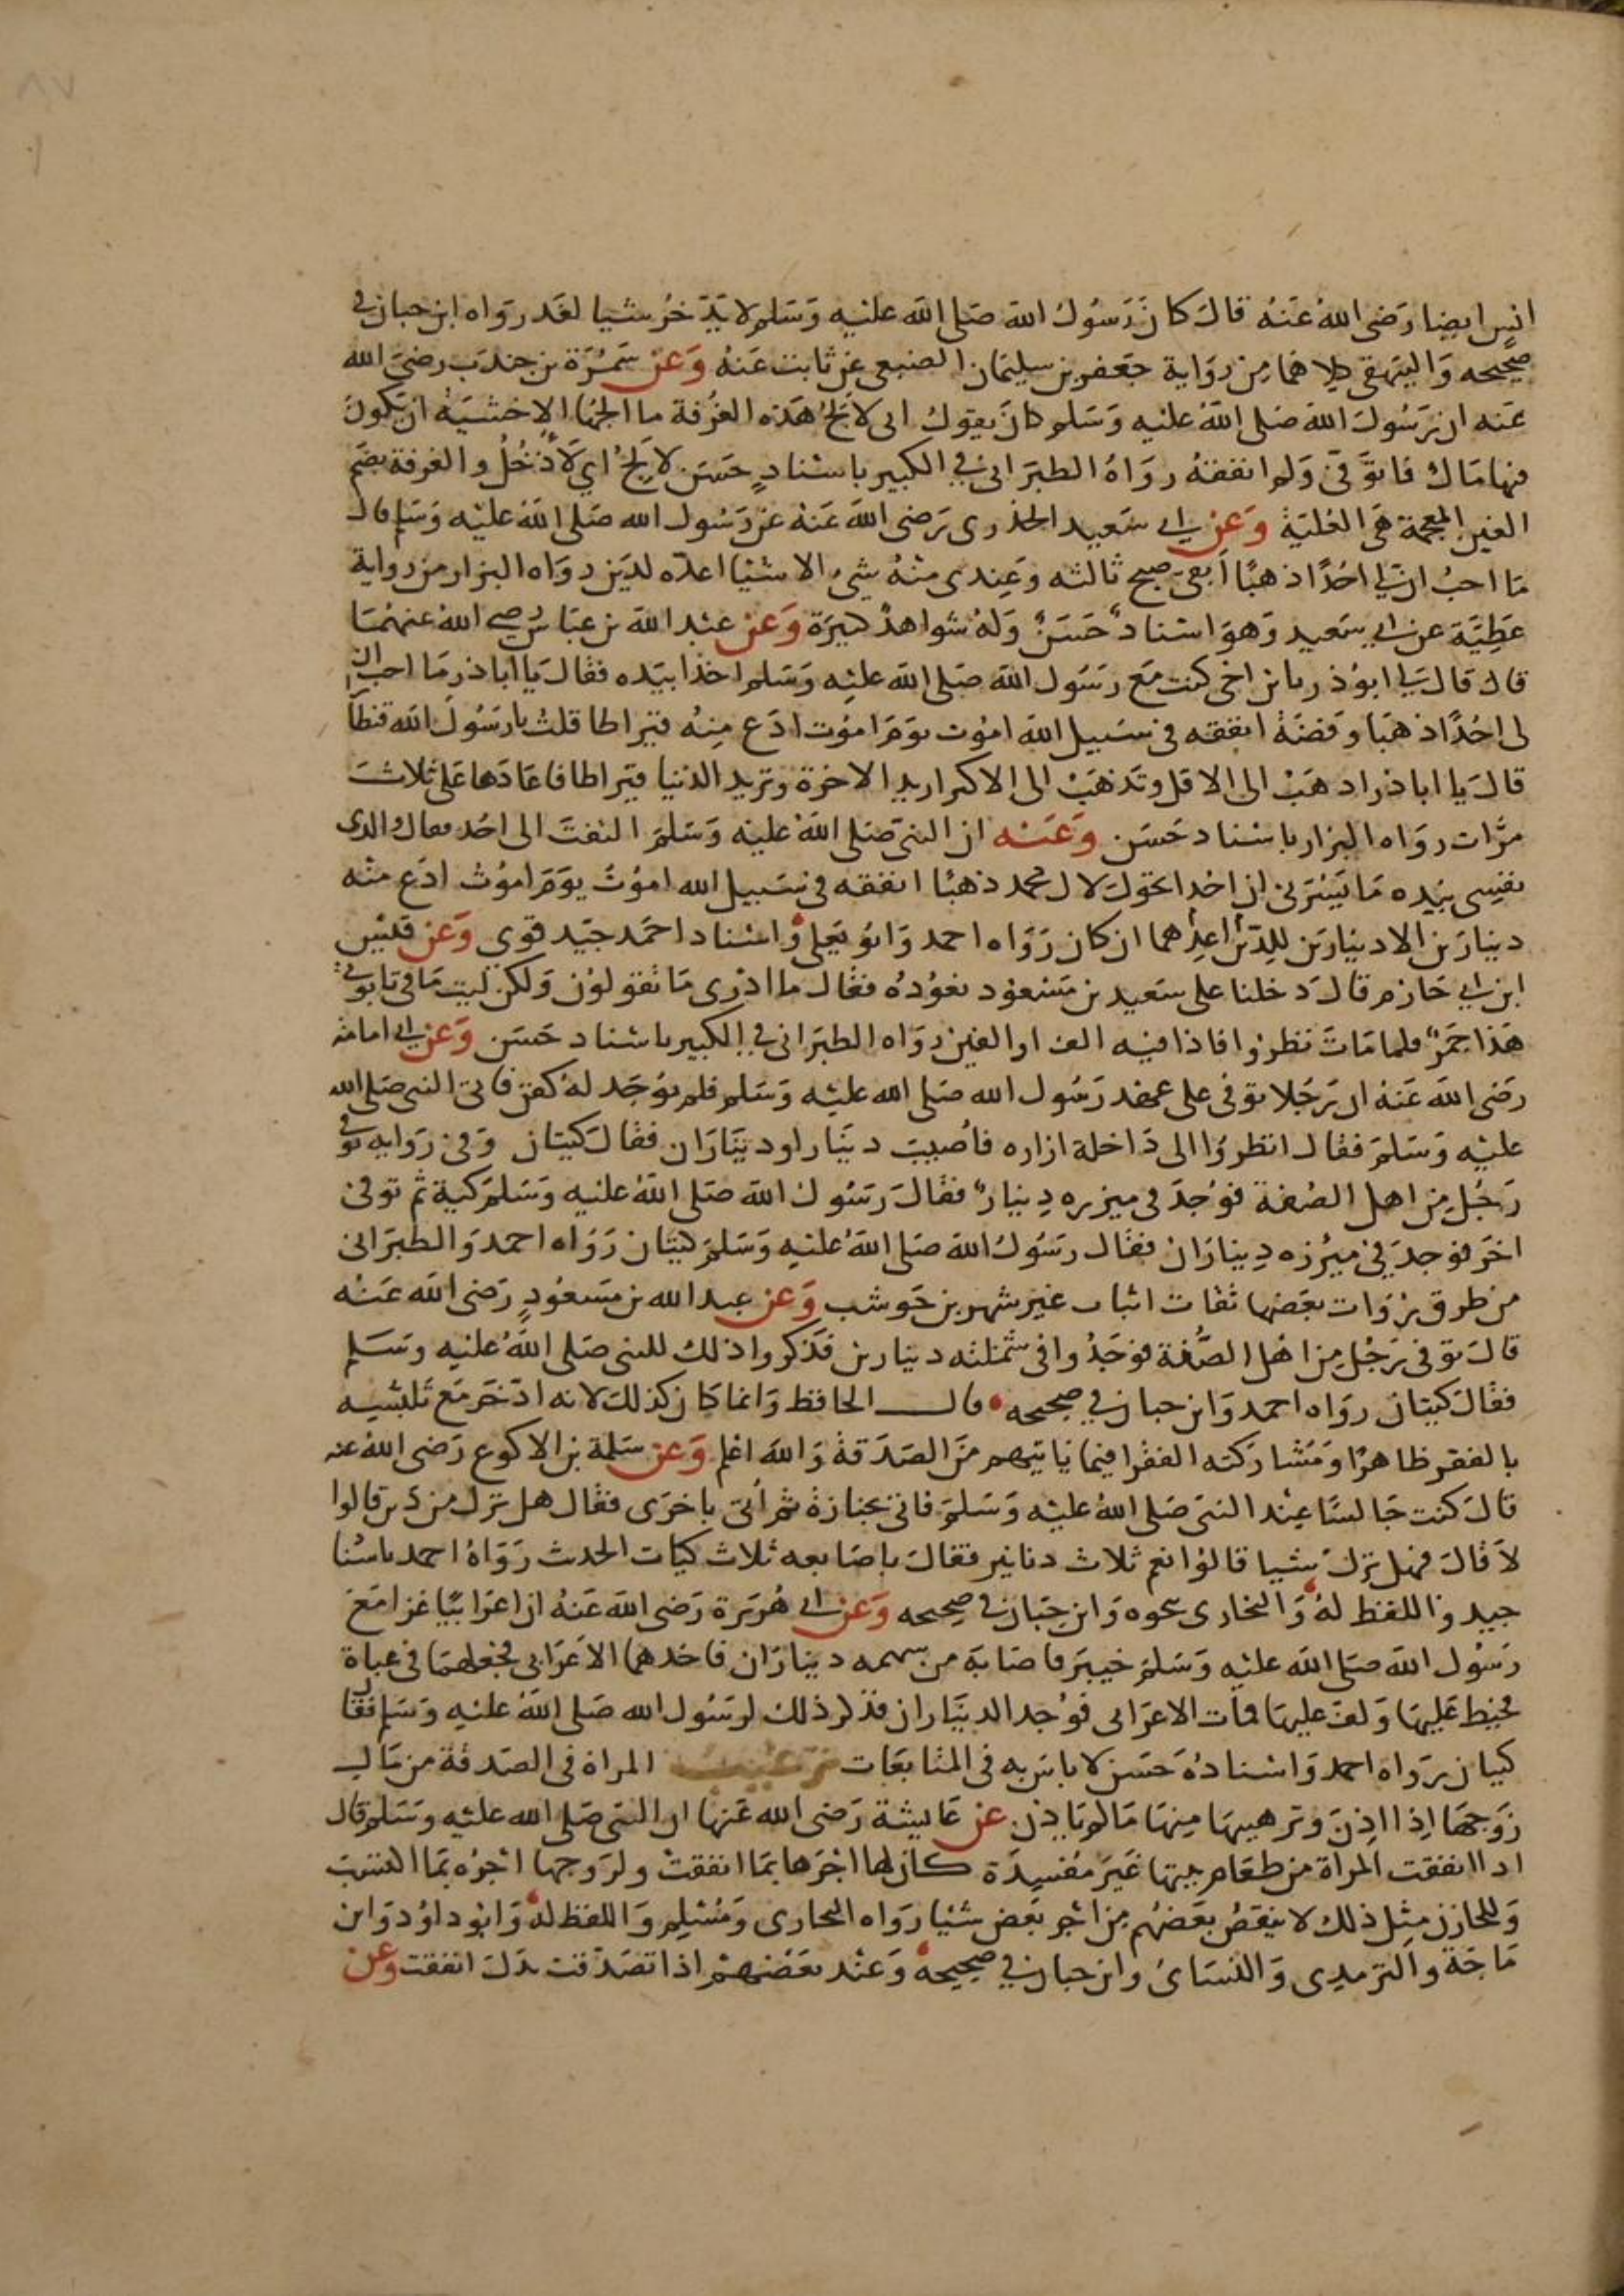 انس ايضا رضى الله عنه قال كان رسول الله صلى الله عليه وسلم لا يدخر شيا لغد رواه ابن حبان في
صحيحه والبيهقي كلاهما من رواية جعفر بن سليمان الضبعي عن ثابت عنه وعن سمرة بن جندب رضي الله
عنه ان رسول الله صلى الله عليه وسلم كان يقول اني لالج هذه الغرفة ما الجها الا خشية ان يكون
فيها مال فاتوفى ولم انفقه رواه الطبراني في الكبير باسناد حسن لالج اي لادخل والغرفة بضم
الغين المعجمة هي العلية وعن ابي سعيد الخدري رضى الله عنه عن رسول الله صلى الله عليه وسلم قال
ما احب ان لي احدا ذهبا ابقى صبح ثالثه وعندى منه شي الا شيا اعده لدين رواه البزار من رواية
عطية عن ابي سعيد وهو اسناد حسن وله شواهد كثيرة وعن عبد الله بن عباس رضي الله عنهما
قال قال لي ابو ذر يا بن اخي كنت مع رسول الله صلى الله عليه وسلم اخذا بيده فقال يا ابا ذر ما احب ان
لى احدا ذهبا وفضة انفقه في سبيل الله اموت يوم اموت ادع منه قيراطا قلت يا رسول الله قنطا
قال يا ابا ذر اذهب الى الاقل وتذهب الى الاكثر اريد الاخرة وتريد الدنيا قيراطا فاعادها على ثلاث
مرات رواه البزار باسناد حسن وعنه ان النبي صلى الله عليه وسلم التفت الى احد فقال والذى
نفسى بيده ما يسرني ان احدا يحول لال محمد ذهبا انفقه في سبيل الله اموت يوم اموت ادع منه
دينارين الا دينارين للدين اعدهما ان كان رواه احمد وابو يعلى واسناد احمد جيد قوي وعن قيس
ابن ابي حازم قال دخلنا على سعيد بن مسعود نعوده فقال ما ادري ما تقولون ولكن ليت ما في تابوتي
هذا جمر فلما مات نظروا فاذا فيه الف او الفين رواه الطبراني في الكبير باسناد حسن وعن ابي امامة
رضى الله عنه ان رجلا توفى على عهد رسول الله صلى الله عليه وسلم فلم يوجد له كفن فاتى النبي صلى الله
عليه وسلم فقال انظروا الى داخلة ازاره فاصيب دينار او ديناران فقال كيتان وفي رواية توفي
رجل من اهل الصفة فوجد في ميزره دينار فقال رسول الله صلى الله عليه وسلم كية ثم توفي
اخر فوجد في ميزره ديناران فقال رسول الله صلى الله عليه وسلم كيتان رواه احمد والطبراني
من طرق رواة بعضها ثقات اثبات غير شهر بن حوشب وعن عبد الله بن مسعود رضى الله عنه
قال توفى رجل من اهل الصفة فوجدوا في شملته دينارين فذكروا ذلك للنبي صلى الله عليه وسلم
فقال كيتان رواه احمد وابن حبان في صحيحه قال الحافظ وانما كان كذلك لانه ادخر مع تلبسه
بالفقر ظاهرا ومشاركته الفقرا فيما ياتيهم من الصدقة والله اعلم وعن سلمة بن الاكوع رضى الله عنه
قال كنت جالسا عند النبي صلى الله عليه وسلم فاتي بجنازة ثم اتى باخرى فقال هل ترك من دين قالوا
لا قال فهل ترك شيا قالوا نعم ثلاث دنانير فقال باصابعه ثلاث كيات الحديث رواه احمد باسنا
جيد واللفظ له والبخارى بنحوه وابن حبان في صحيحه وعن ابي هريرة رضى الله عنه ان اعرابيا غزا مع
رسول الله صلى الله عليه وسلم خيبر فاصابه من سهمه ديناران فاخذهما الاعرابي فجعلهما في عباة
فخيط عليها ولف عليها فمات الاعرابي فوجد الديناران فذكر ذلك لرسول الله صلى الله عليه وسلم فقال
كيان رواه احمد واسناده حسن لا باس به في المتابعات ترغيب المراة في الصدقة من مال
زوجها اذا اذن وترهيبها منها ما لم ياذن عن عايشة رضى الله عنها ان النبي صلى الله عليه وسلم قال
اذا انفقت المراة من طعام بيتها غير مفسدة كان لها اجرها بما انفقت ولزوجها اجره بما اكتسب
وللخازن مثل ذلك لا ينقص بعضهم من اجر بعض شيا رواه البخارى ومسلم واللفظ له وابو داود وابن
ماجة والترمذى والنساى وابن حبان في صحيحه وعند بعضهم اذا تصدقت بدل انفقت وعن